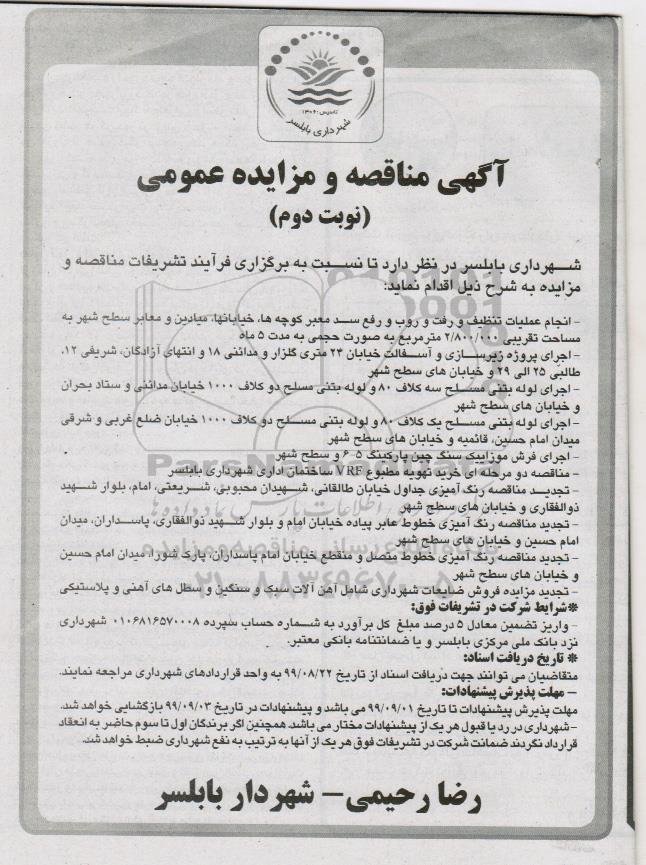 تاسیس: ۱۳۰۶
شهرداری بابلسر
آگهی مناقصه و مزایده عمومی
(نوبت دوم)
شهرداری بابلسر در نظر دارد تا نسبت به برگزاری فرآیند تشریفات مناقصه و
مزایده به شرح ذیل اقدام نماید:
- انجام عملیات تنظیف و رفت و روب و رفع سد معبر کوچه ها، خیابانها، میادین و معابر سطح شهر به
مساحت تقریبی ۲/۸۰۰/۰۰۰ مترمربع به صورت حجمی به مدت ۵ ماه
- اجرای پروژه زیرسازی و آسفالت خیابان ۲۴ متری گلزار و مدائنی ۱۸ و انتهای آزادگان، شریفی ۱۲،
طالبی ۲۵ الی ۲۹ و خیابان های سطح شهر
- اجرای لوله بتنی مسلح سه کلاف ۸۰ و لوله بتنی مسلح دو کلاف ۱۰۰۰ خیابان مدائنی و ستاد بحران
و خیابان های سطح شهر
- اجرای لوله بتنی مسلح یک کلاف ۸۰ و لوله بتنی مسلح دو کلاف ۱۰۰۰ خیابان ضلع غربی و شرقی
میدان امام حسین، قائمیه و خیابان های سطح شهر
- اجرای فرش موزاییک سنگ چین پارکینگ ۵-۶ و سطح شهر
- مناقصه دو مرحله ای خرید تهویه مطبوع VRF ساختمان اداری شهرداری بابلسر
- تجدید مناقصه رنگ آمیزی جداول خیابان طالقانی، شهیدان محبوبی، شریعتی، امام، بلوار شهید
ذوالفقاری و خیابان های سطح شهر
- تجدید مناقصه رنگ آمیزی خطوط عابر پیاده خیابان امام و بلوار شهید ذوالفقاری، پاسداران، میدان
امام حسین و خیابان های سطح شهر
- تجدید مناقصه رنگ آمیزی خطوط متصل و منقطع خیابان امام پاسداران، پارک شورا، میدان امام حسین
و خیابان های سطح شهر
- تجدید مزایده فروش ضایعات شهرداری شامل آهن آلات سبک و سنگین و سطل های آهنی و پلاستیکی
*شرایط شرکت در تشریفات فوق:
- واریز تضمین معادل ۵ درصد مبلغ کل برآورد به شماره حساب سپرده ۰۱۰۶۸۱۶۵۷۰۰۰۸ شهرداری
نزد بانک ملی مرکزی بابلسر و یا ضمانتنامه بانکی معتبر.
* تاریخ دریافت اسناد:
متقاضیان می توانند جهت دریافت اسناد از تاریخ ۹۹/۰۸/۲۲ به واحد قراردادهای شهرداری مراجعه نمایند.
- مهلت پذیرش پیشنهادات:
مهلت پذیرش پیشنهادات تا تاریخ ۹۹/۰۹/۰۱ می باشد و پیشنهادات در تاریخ ۹۹/۰۹/۰۳ بازگشایی خواهد شد.
- شهرداری در رد یا قبول هر یک از پیشنهادات مختار می باشد. همچنین اگر برندگان اول تا سوم حاضر به انعقاد
قرارداد نگردند ضمانت شرکت در تشریفات فوق هر یک از آنها به ترتیب به نفع شهرداری ضبط خواهد شد.
رضا رحیمی - شهردار بابلسر
ParsNamadData
۰۲۱-۸۸۳۴۹۶۷۰-۵